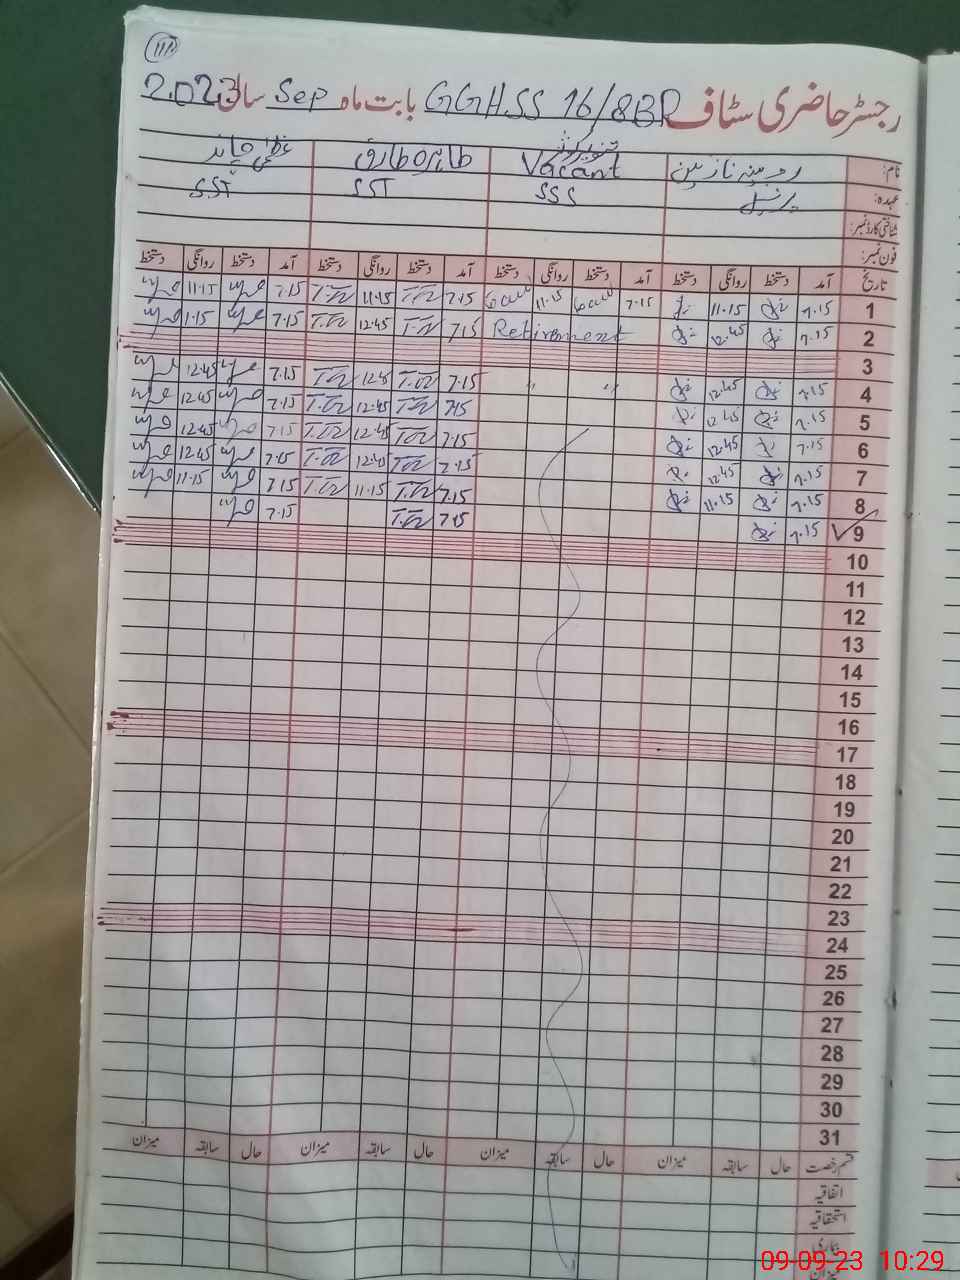 111
رجسٹر حاضری سٹاف GGHSS 16/8BR بابت ماہ Sep سال 2023
نام: Vacant طاہرہ طارق عظمیٰ چاند
عہدہ: پرنسپل SSS SST SST
شناختی کارڈ نمبر:
فون نمبر:
تاریخ آمد دستخط روانگی دستخط آمد دستخط روانگی دستخط آمد دستخط روانگی دستخط آمد دستخط روانگی دستخط
1 7.15 11.15 7.15 11.15 7.15 11.15 7.15 11.15
2 7.15 12.45 Retirement 7.15 12.45 7.15 1.15
3
4 7.15 12.45 " " 7.15 12.45 7.15 12.45
5 7.15 12.45 7.15 12.45 7.15 12.45
6 7.15 12.45 7.15 12.45 7.15 12.45
7 7.15 12.45 7.15 12.45 7.15 12.45
8 7.15 11.15 7.15 11.15 7.15 11.15
9 7.15 7.15 7.15
10
11
12
13
14
15
16
17
18
19
20
21
22
23
24
25
26
27
28
29
30
31
قسم رخصت حال سابقہ میزان حال سابقہ میزان حال سابقہ میزان حال سابقہ میزان
اتفاقیہ
استحقاقیہ
بیماری
میزان
09-09-23 10:29